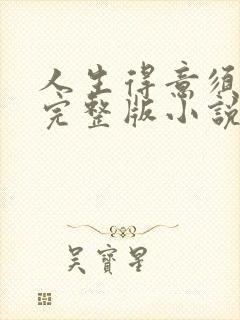 人生得意须
完整版小說
吳寶星